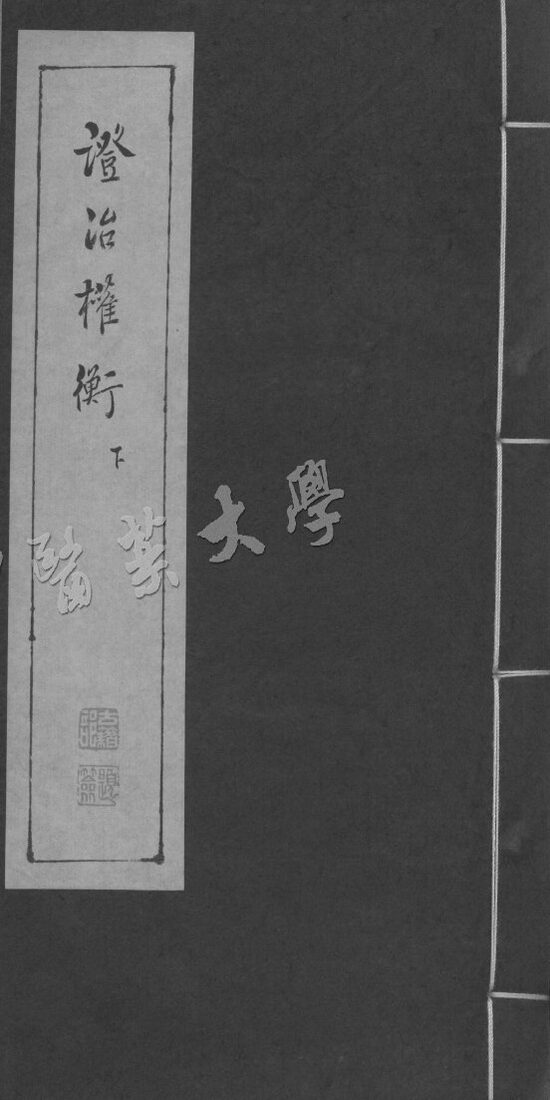 證治權衡
下
醫藥大學